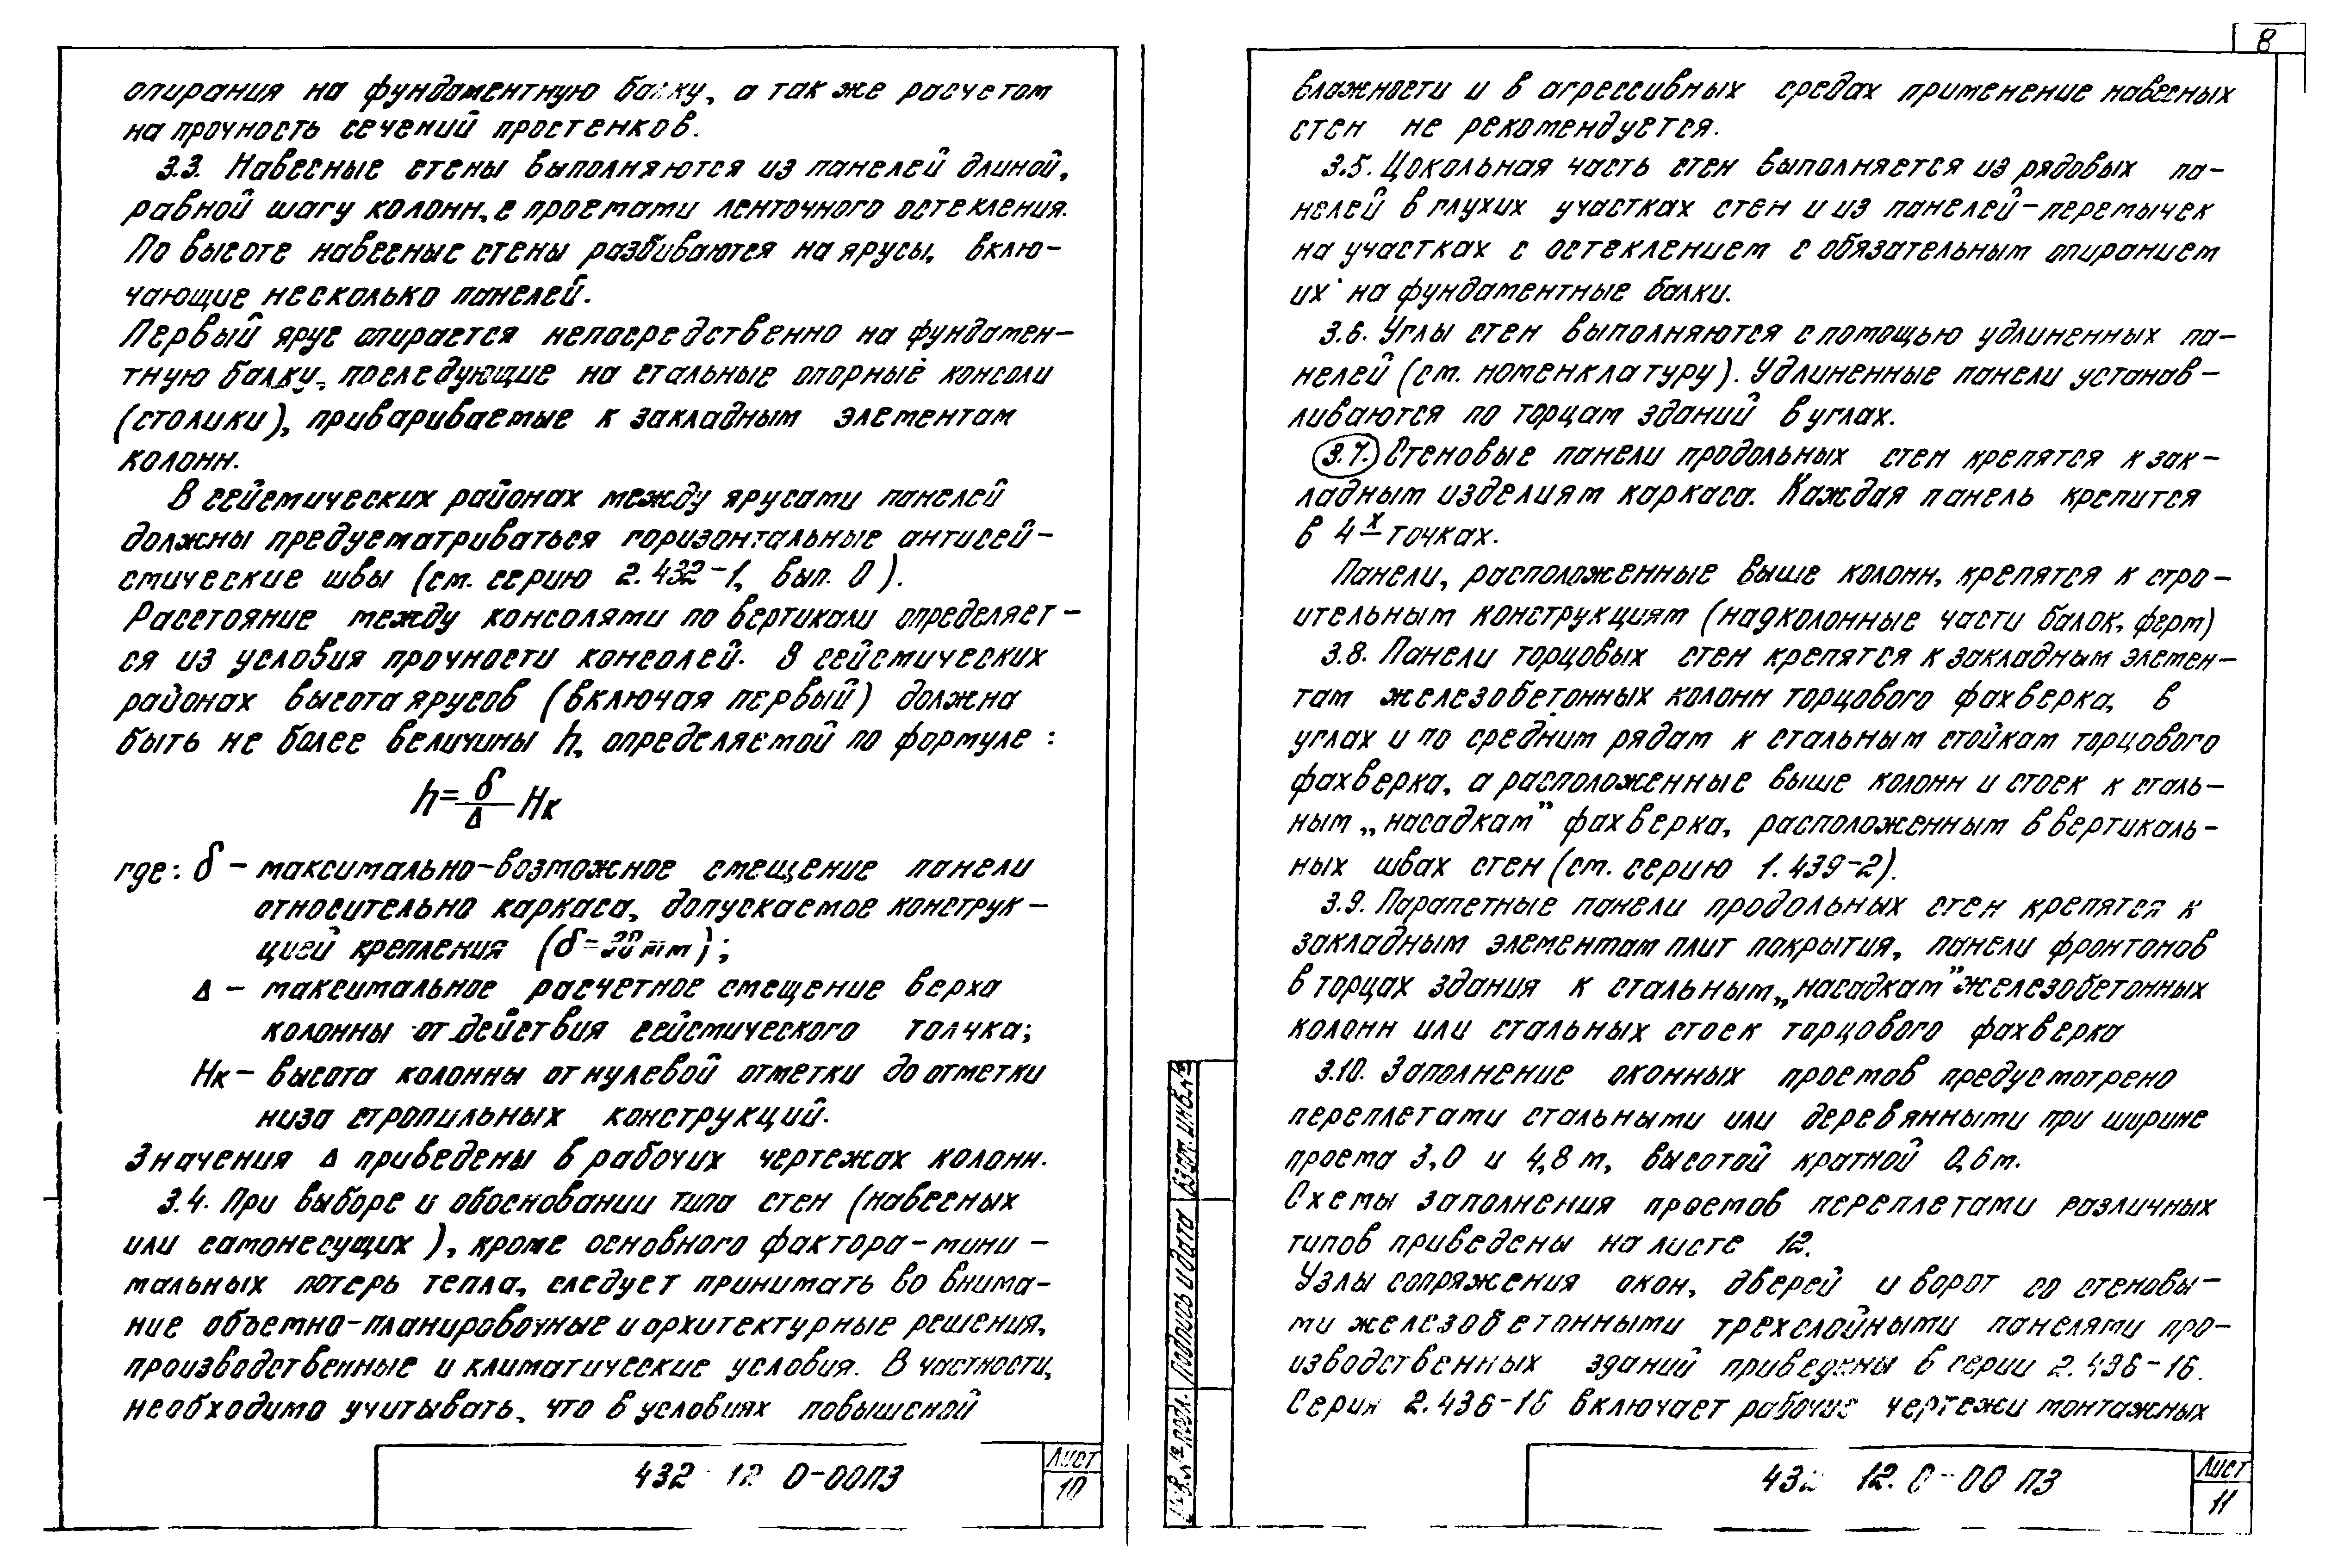 опирания на фундаментную балку, а так же расчетом
на прочность сечений простенков.
3.3. Навесные стены выполняются из панелей длиной,
равной шагу колонн, с проемами ленточного остекления.
По высоте навесные стены разбиваются на ярусы, вклю-
чающие несколько панелей.
Первый ярус опирается непосредственно на фундамен-
тную балку, последующие на стальные опорные консоли
(столики), привариваемые к закладным элементам
колонн.
В сейсмических районах между ярусами панелей
должны предусматриваться горизонтальные антисей-
смические швы (см. серию 2.432-1, вып. 0).
Расстояние между консолями по вертикали определяет-
ся из условия прочности консолей. В сейсмических
районах высота ярусов (включая первый) должна
быть не более величины h, определяемой по формуле :
h = δ/Δ Hк
где: δ - максимально-возможное смещение панели
относительно каркаса, допускаемое конструк-
цией крепления (δ= мм);
Δ - максимальное расчетное смещение верха
колонны от действия сейсмического толчка;
Hк - высота колонны от нулевой отметки до отметки
низа стропильных конструкций.
Значения Δ приведены в рабочих чертежах колонн.
3.4. При выборе и обосновании типа стен (навесных
или самонесущих), кроме основного фактора - мини-
мальных потерь тепла, следует принимать во внима-
ние объемно-планировочные и архитектурные решения,
производственные и климатические условия. В частности,
необходимо учитывать, что в условиях повышеной
432 12 0-00ПЗ
Лист
10
8
влажности и в агрессивных средах применение навесных
стен не рекомендуется.
3.5. Цокольная часть стен выполняется из рядовых па-
нелей в глухих участках стен и из панелей-перемычек
на участках с остеклением с обязательным опиранием
их на фундаментные балки.
3.6. Углы стен выполняются с помощью удлиненных па-
нелей (см. номенклатуру). Удлиненные панели устанав-
ливаются по торцам зданий в углах.
3.7. Стеновые панели продольных стен крепятся к зак-
ладным изделиям каркаса. Каждая панель крепится
в 4х точках.
Панели, расположенные выше колонн, крепятся к стро-
ительным конструкциям (надколонные части балок, ферм)
3.8. Панели торцовых стен крепятся к закладным элемен-
там железобетонных колонн торцового фахверка, в
углах и по средним рядам к стальным стойкам торцового
фахверка, а расположенные выше колонн и стоек к сталь-
ным „насадкам” фахверка, расположенным в вертикаль-
ных швах стен (см. серию 1.439-2).
3.9. Парапетные панели продольных стен крепятся к
закладным элементам плит покрытия, панели фронтонов
в торцах здания к стальным „насадкам” железобетонных
колонн или стальных стоек торцового фахверка
3.10. Заполнение оконных проемов предусмотрено
переплетами стальными или деревянными при ширине
проема 3,0 и 4,8 м, высотой кратной 0,6м.
Схемы заполнения проемов переплетами различных
типов приведены на листе 12.
Узлы сопряжения окон, дверей и ворот со стеновы-
ми железобетонными трехслойными панелями про-
изводственных зданий приведены в серии 2.436-16.
Серия 2.436-16 включает рабочие чертежи монтажных
Взам. инв. №
Подпись и дата
Инв. № подл.
12. 0-00 ПЗ
Лист
11